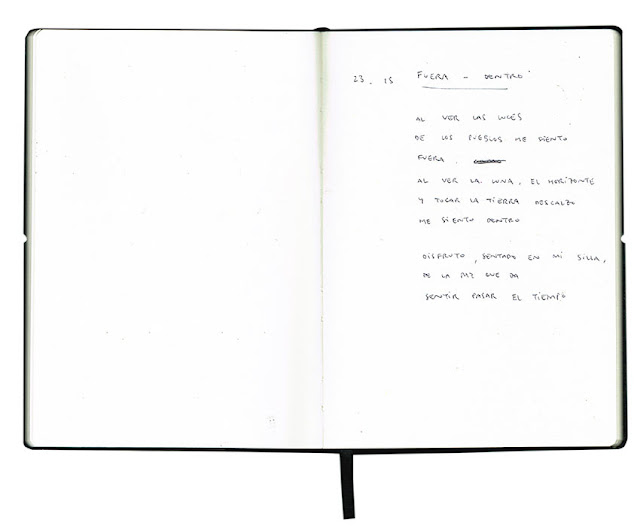 23.15 FUERA - DENTRO
AL VER LAS LUCES
DE LOS PUEBLOS ME SIENTO
FUERA.
AL VER LA LUNA, EL HORIZONTE
Y TOCAR LA TIERRA DESCALZO
ME SIENTO DENTRO
DISFRUTO, SENTADO EN MI SILLA,
DE LA PAZ QUE DA
SENTIR PASAR EL TIEMPO